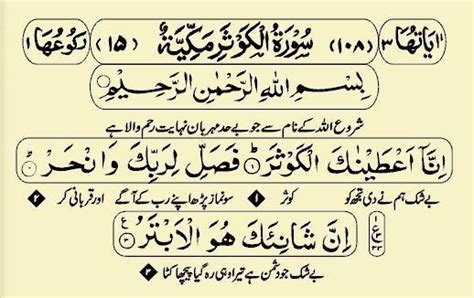 اٰیَاتُهَا ٣ (١٠٨) سُوْرَةُ الْكَوْثَرِ مَكِّیَّةٌ (١٥) رُكُوْعُهَا ١
بِسْمِ اللّٰهِ الرَّحْمٰنِ الرَّحِیْمِ
شروع اللہ کے نام سے جو بے حد مہربان نہایت رحم والا ہے
اِنَّاۤ اَعْطَیْنٰكَ الْكَوْثَرَ ۱ فَصَلِّ لِرَبِّكَ وَ انْحَرْ
بے شک ہم نے دی تجھ کو کوثر ۱ سو نماز پڑھ اپنے رب کے آگے اور قربانی کر ۲
اِنَّ شَانِئَكَ هُوَ الْاَبْتَرُ
بے شک جو دشمن ہے تیرا وہی رہ گیا پیچھا کٹا ۳